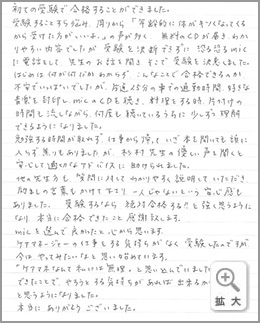 初ての受験で合格することができました。
受験することすら悩み、周りから「年齢的に体がきつくなってくる
から受けた方がいいよ。」の声が多く、無料のCDが届き、わか
りやすい内容でしたが受験を決断できずに、恐る恐るmic
に電話をして、先生のお話を聞き、そこで受験を決意しました。
はじめは何が何だかわからず、こんなことで合格できるのか
不安でいっぱいでしたが、片道15分の車での通勤時間、好きな
音楽を封印し、micのCDを聴き、料理をする時、片付けの
時間も流しながら、何度も聴いているうちに少しずつ理解
できるようになりました。
勉強する時間が取れず仕事から帰って、いざ本を開いても頭に
入らず焦りもありましたが、
先生の優しい声を聞くと
安心して
に助けられました。
他の先生方も質問に対してわかりやすく説明していただき、
励ましの言葉もかけて下さり、一人じゃないという安心感も
ありました。受験するなら絶対合格する!!と強く思うように
なり、本当に合格できたこと感謝致します。
micを選んで良かったと、心から思います。
ケアマネージャーの仕事をする気持ちがなく受験したんですが、
今は、やってみたいなと思い始めています。
"ケアマネなんて私には無理。"と思い込んでいました
できたことで、やろうとする気持ちがあれば出来るか
と思うようになりました。
本当にありがとうございました。
拡大